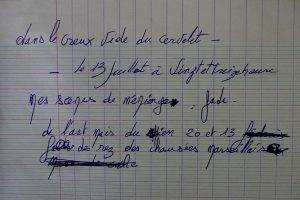 dans le creux vide du cervelet -
- le 13 juillet à vingt et treize heure
mes scènes de ménige , fade -
de l'ast mais du 20 et 13
des rez des chaussées marseillais